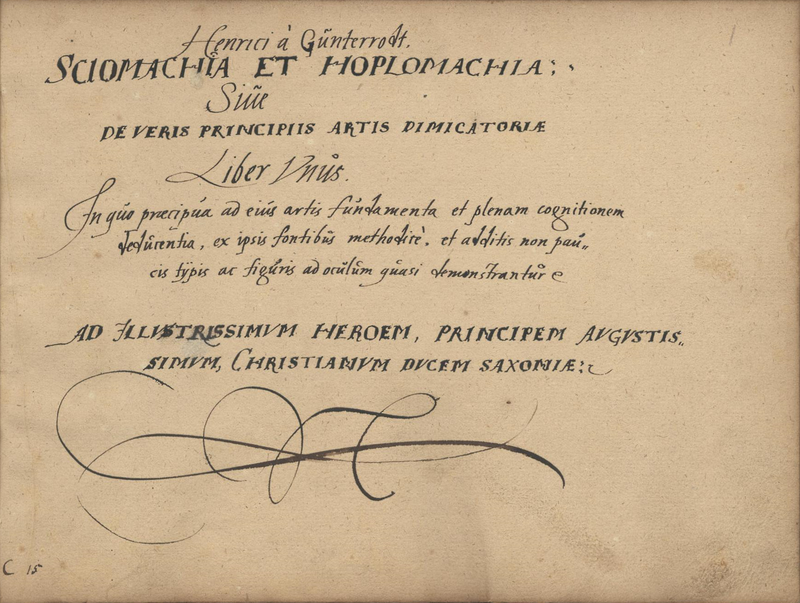 1
Henrici à Gűnterrodt.
SCIOMACHIA ET HOPLOMACHIA:
Siűe
DE VERIS PRINCIPIIS ARTIS DIMICATORIÆ
Liber Vnűs.
In qűo præcipűa ad eiűs artis fűndamenta et plenam cognitionem
dedűcentia, ex ipsis fontibűs methodicè, et additis non paű„
cis tÿpis ac figűris ad ocűlűm qűasi demonstrantűr
AD ILLVSTRISSIMVM HEROEM, PRINCIPEM AVGVSTIS„
SIMVM, CHRISTIANVM DVCEM SAXONIÆ:
C 15